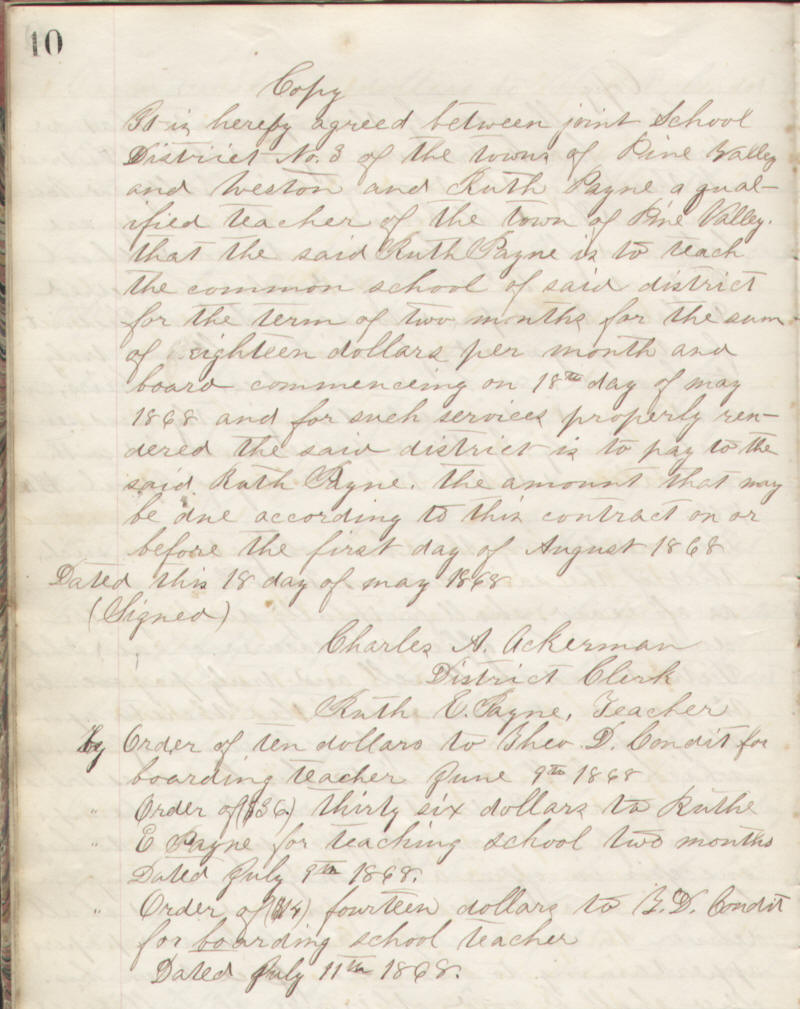 10
Copy
It is hereby agreed between joint School
District No. 3 of the towns of Pine Valley
and Weston and Ruth Payne a qual-
ified teacher of the town of Pine Valley.
that the said Ruth Payne is to teach
the common school of said district
for the term of two months for the sum
of eighteen dollars per month and
board commenceing on 18th day of may
1868 and for such services properly ren-
dered the said district is to pay to the
said Ruth Payne. the amount that may
be due according to this contract on or
before the first day of August 1868
Dated this 18 day of may 1868
(Signed)
Charles A. Ackerman
District Clerk
Ruth E. Payne, Teacher
by Order of ten dollars to Theo. D. Condit for
boarding teacher June 9th 1868
" Order of ($36.) thirty six dollars to Ruthe
" E Payne for teaching school two months
Dated July 9th 1868.
" Order of ($14) fourteen dollars to T. D. Condit
for boarding school teacher
Dated July 11th 1868.